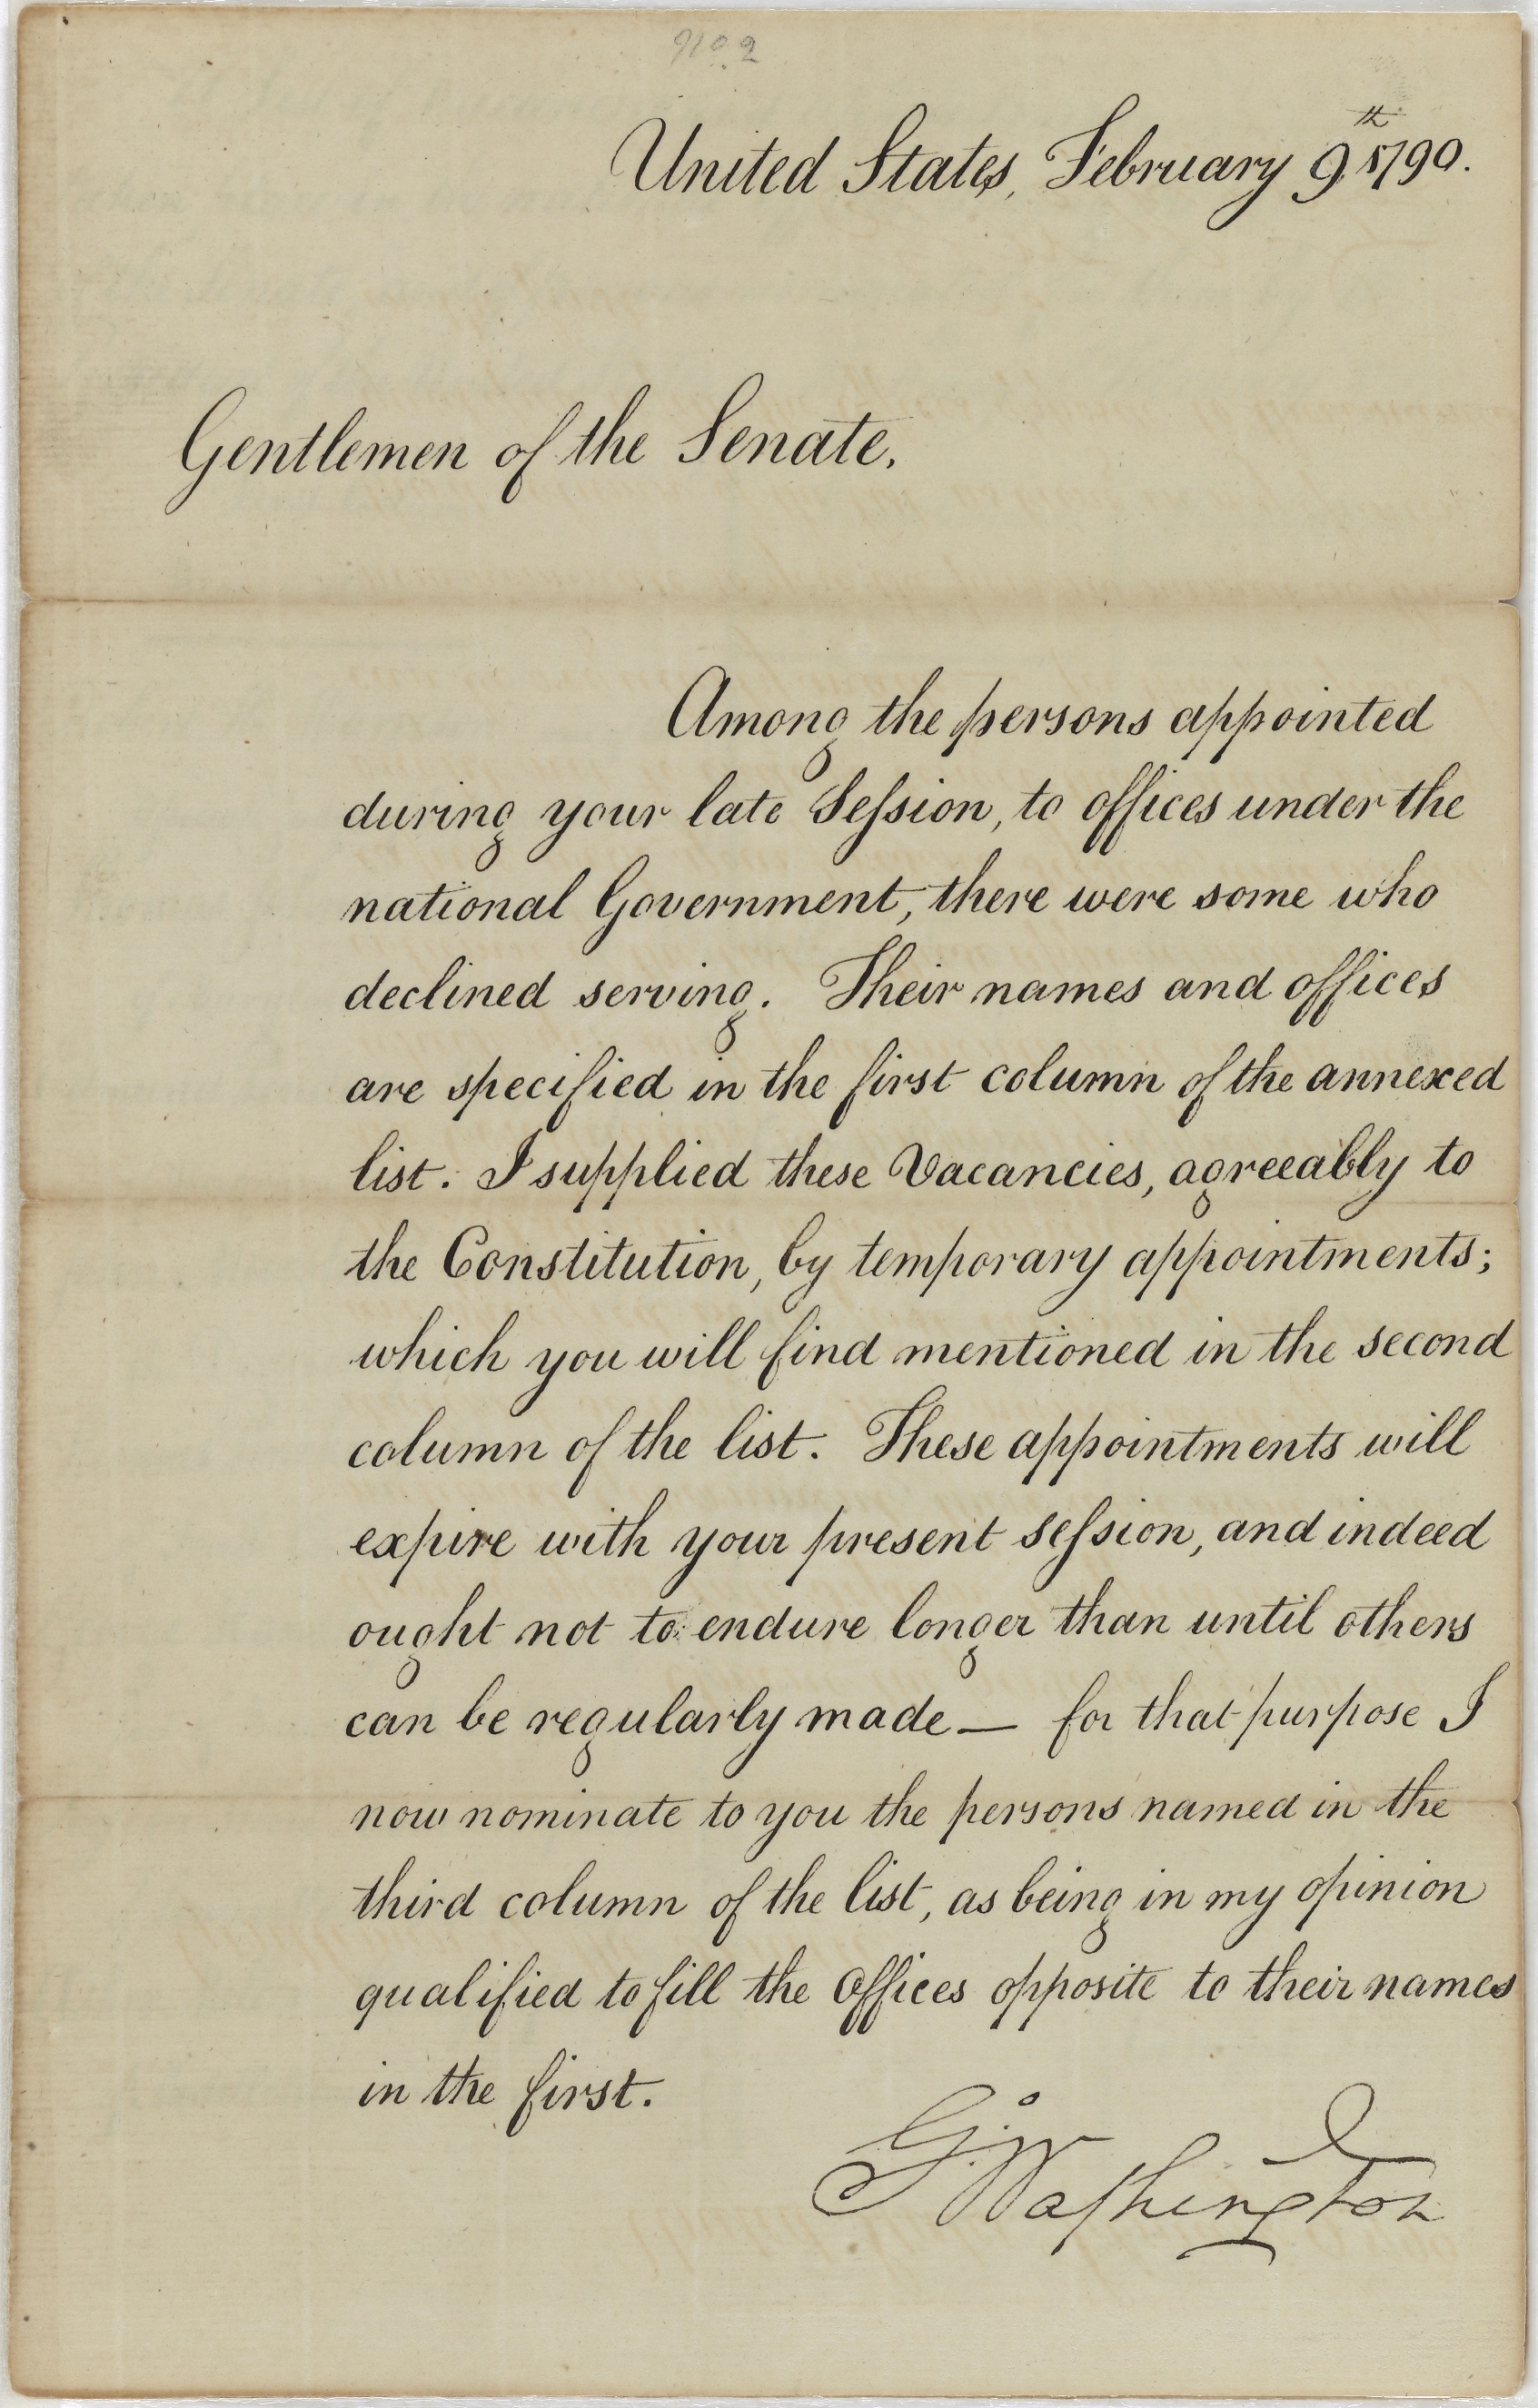 No. 2
United States, February 9th 1790.
Gentlemen of the Senate,
Among the persons appointed
during your late Seſsion, to offices under the
national Government, there were some who
declined serving. Their names and offices
are specified in the first column of the annexed
list. I supplied these Vacancies, agreeably to
the Constitution, by temporary appointments;
which you will find mentioned in the second
column of the list. These appointments will
expire with your present seſsion, and indeed
ought not to endure longer than until others
can be regularly made — for that purpose I
now nominate to you the persons named in the
third column of the list, as being in my opinion
qualified to fill the Offices opposite to their names
in the first.
Go: Waſhington